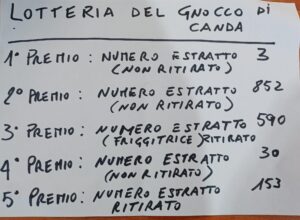 LOTTERIA DEL GNOCCO DI
CANDA
1° PREMIO: NUMERO ESTRATTO 3
(NON RITIRATO)
2° PREMIO: NUMERO ESTRATTO 852
(NON RITIRATO)
3° PREMIO: NUMERO ESTRATTO 590
(FRIGGITRICE) RITIRATO
4° PREMIO: NUMERO ESTRATTO 30
(NON RITIRATO)
5° PREMIO: NUMERO ESTRATTO 153
RITIRATO